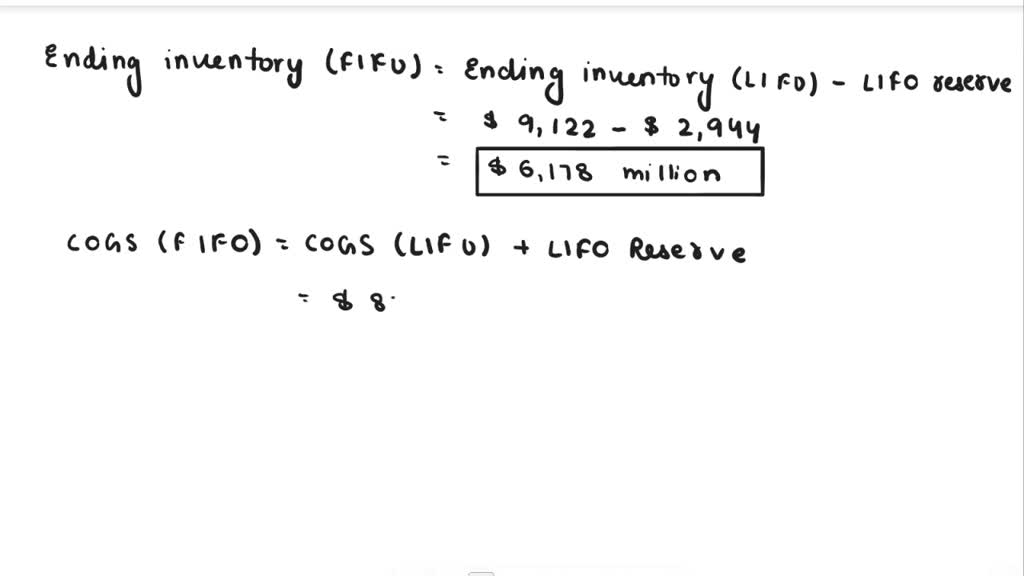 Ending inventory (FIFO) = Ending inventory (LIFO) - LIFO reserve
= $ 9,122 - $ 2,944
= $ 6,178 million
COGS (FIFO) = COGS (LIFO) + LIFO Reserve
= $ 8.